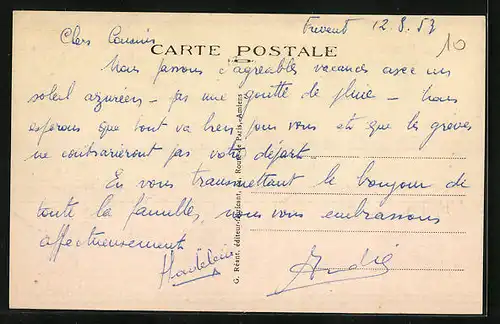 Frévent 12.8.53
10
Chers Cousins
CARTE POSTALE
Nous passons d'agréables vacances avec un
soleil azuréen - pas une goutte de pluie - Nous
espérons que tout va bien pour vous et que les grèves
ne contrarieront pas votre départ.
En vous transmettant le bonjour de
toute la famille, nous vous embrassons
affectueusement
Madeleine
André
G. Réant, éditeur-
Route de Paris, Amiens